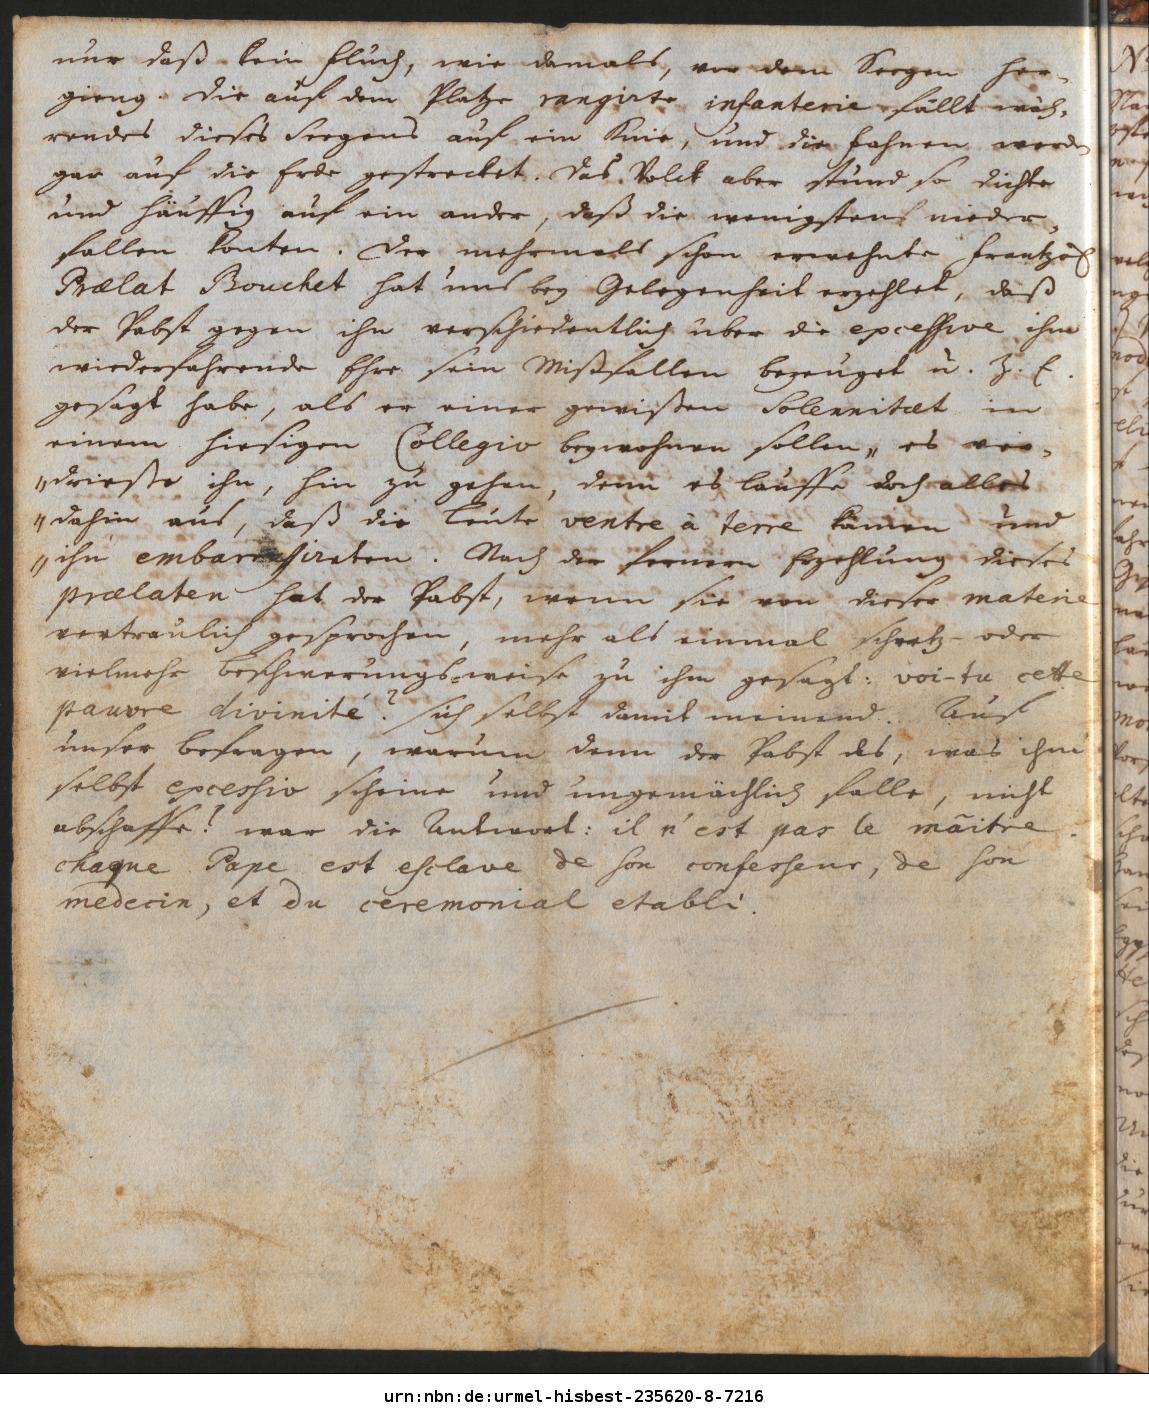 nur daß kein Fluch, wie damals, vor dem Seegen her-
gieng. Die auf dem Platze rangirte infanterie fällt wäh-
rendes dieses Seegens auf ein Knie, und die Fahnen werden
gar auf die Erde gestrecket. Das Volck aber stund so dichte
und häuffig auf ein ander, daß die wenigstens nieder-
fallen konten. Der mehrmals schon erwehnte Frantzös
Prælat Bouchet hat uns bey Gelegenheit erzehlet, daß
der Pabst gegen ihn verschiedentlich über die excessive ihm
wiederfahrende Ehre sein Mißfallen bezeuget u. Z. E.
gesagt habe, als er einer gewißen Solennitæt in
einem hiesigen Collegio beywohnen sollen „ es ver-
„ drieße ihn, hin zu gehen, denn es lauffe doch alles
„ dahin aus, daß die Leute ventre à terre kämen und
„ ihn embarassirten. Nach der fernern Erzehlung dieses
prælaten hat der Pabst, wenn sie von dieser materie
vertraulich gesprochen, mehr als einmal schertz- oder
vielmehr beschwerungs-weise zu ihm gesagt: voi-tu cette
pauvre divinité? sich selbst damit meinend. Auf
unser befragen, warum denn der Pabst das, was ihm
selbst excessiv scheine und ungemächlich falle, nicht
abschaffe! war die Antwort: il n'est pas le maitre.
chaque Pape est esclave de son confesseur, de son
medecin, et du ceremonial etabli.
urn:nbn:de:urmel-hisbest-235620-8-7216